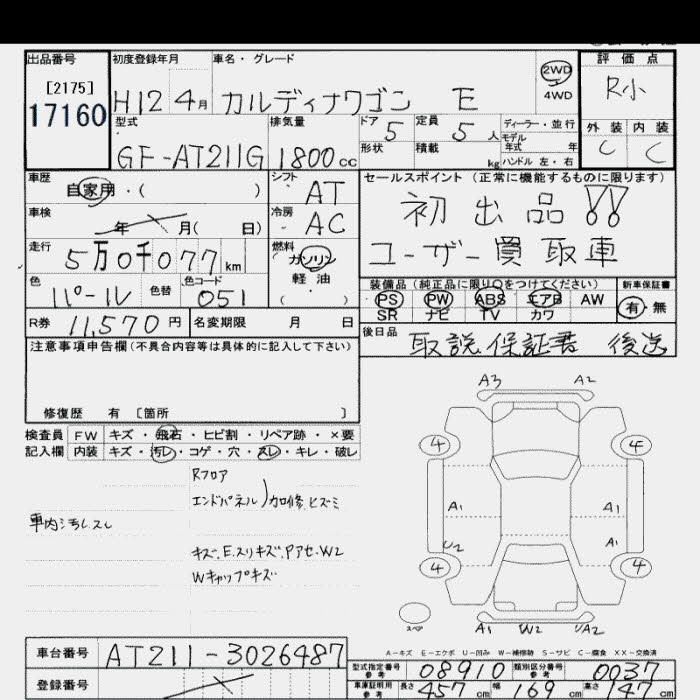 出品番号 初度登録年月 車名・グレード 2WD 4WD 評価点
[2175]
17160
H12 4月 カルディナワゴン E R小
型式 排気量 ドア 5 定員 5人 ディーラー・並行 外装 内装
モデル年式 年
GF-AT211G 1800cc 形状 積載 kg ハンドル 左・右 C C
車歴 シフト セールスポイント (正常に機能するものに限ります)
自家用・( ) AT
初出品!!
車検 年 月( 日) 冷房 AC
ユーザー買取車
走行 5万0千077km 燃料 ガソリン 軽油 ( )
色 パール 色替 色コード 051
装備品(純正品に限り○をつけてください) 新車保証書
PS PW ABS エアB AW 有・無
SR ナビ TV カワ
R券 11,570円 名変期限 月 日
後日品 取説 保証書 後送
注意事項申告欄(不具合内容等は具体的に記入して下さい)
修復歴 有 [箇所 ]
検査員 FW キズ・飛石・ヒビ割・リペア跡・×要
記入欄 内装 キズ・汚レ・コゲ・穴・スレ・キレ・破レ
Rフロア
エンドパネル 加修、ヒズミ
車内汚レスレ
キズ、E、スリキズ、Pアセ、W2
Wキャップキズ
A3 A2
4 4
A1 A1
U2 A1
4 4
スペア
A1 W2 UA2
A-キズ E-エクボ U-凹み W-補修跡 S-サビ C-腐食 XX-交換済
車台番号 AT211-3026487
型式指定番号 参考 08910 類別区分番号 参考 0037
登録番号
車庫証明用 参考 長さ 457cm 幅 169cm 高さ 147cm